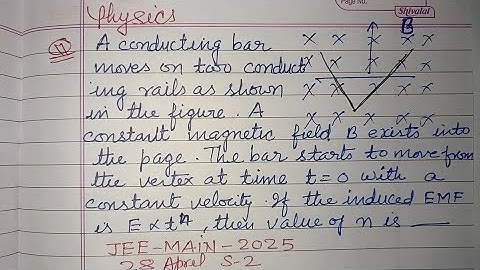 Page No.
Shivalal
Physics
11
A conducting bar
moves on two conduct
ing rails as shown
in the figure. A
x x x B x
x x x x x
x x x x x
x x x x x
constant magnetic field B exists into
the page. The bar starts to move from
the vertex at time t=0 with a
constant velocity. If the induced EMF
is E ∝ tⁿ, then value of n is ___
JEE-MAIN-2025
28 April S-2